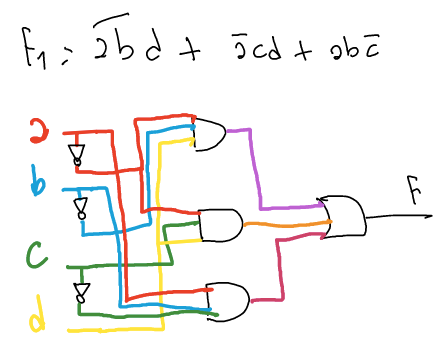 F₁ = a̅b̅d + a̅cd + abc̅
a
b
F
c
d